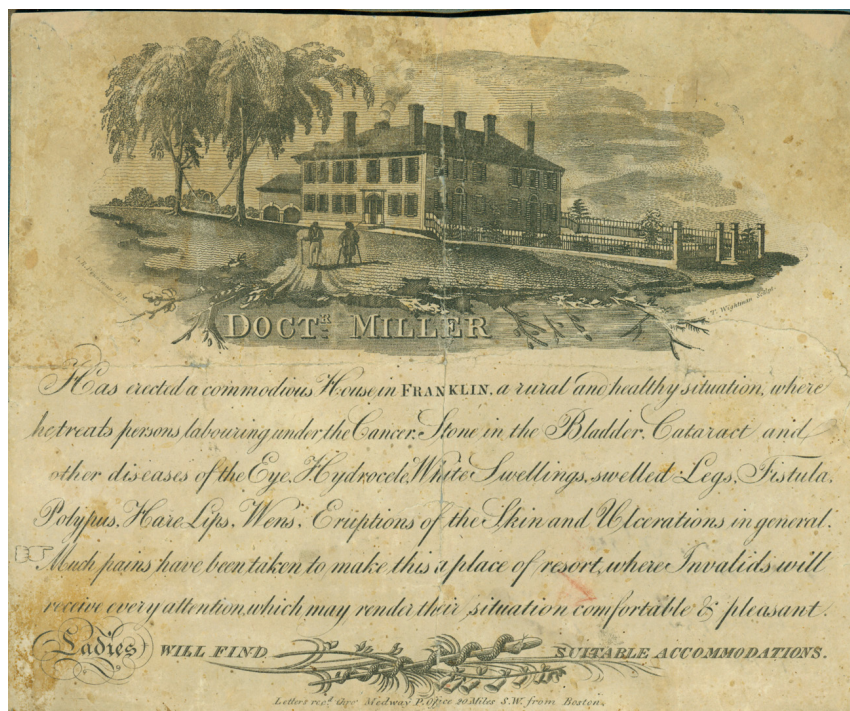 DOCTR. MILLER
T. Wightman
Has erected a commodious House in FRANKLIN. a rural and healthy situation, where
he treats persons labouring under the Cancer. Stone in the Bladder. Cataract and
other diseases of the Eye. Hydrocele, White Swellings, swelled Legs. Fistula.
Polypus. Hare Lips. Wens. Eruptions of the Skin and Ulcerations in general.
Much pains have been taken to make this a place of resort, where Invalids will
receive every attention, which may render their situation comfortable & pleasant.
Ladies WILL FIND SUITABLE ACCOMMODATIONS.
Letters recd. thro' Medway P. Office 20 Miles S.W. from Boston.